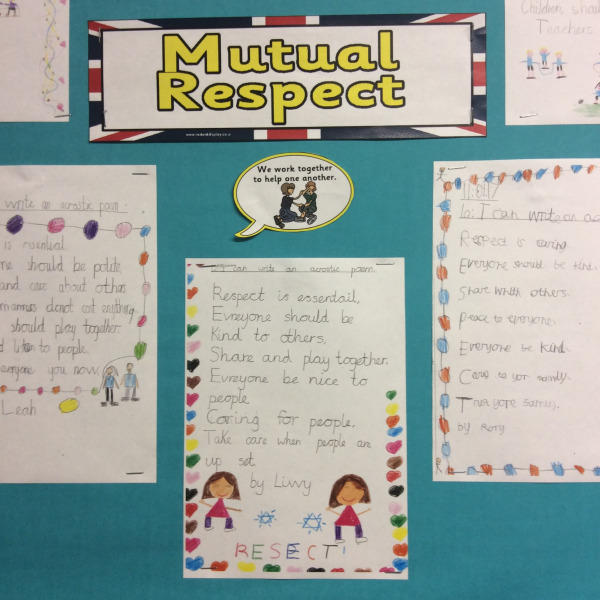 Children should
Teachers
Mutual
Respect
We work together
to help one another.
write an acrostic poem.
is essential
should be polite,
and care about others
manners do not cost anything
should play together
to people.
everyone you now.
Leah
can write an acrostic poem.
Respect is essentail,
Evreyone should be
Kind to others,
Share and play together.
Evreyone be nice to
people
Caring for people,
Take care when people are
up set.
by Livvy
RESECT!
lo: I can write an ac
Respect is caring.
Everyone should be kind.
Share with others.
Peace to everyone.
Everyone be kind.
Care to yor family.
by Rory